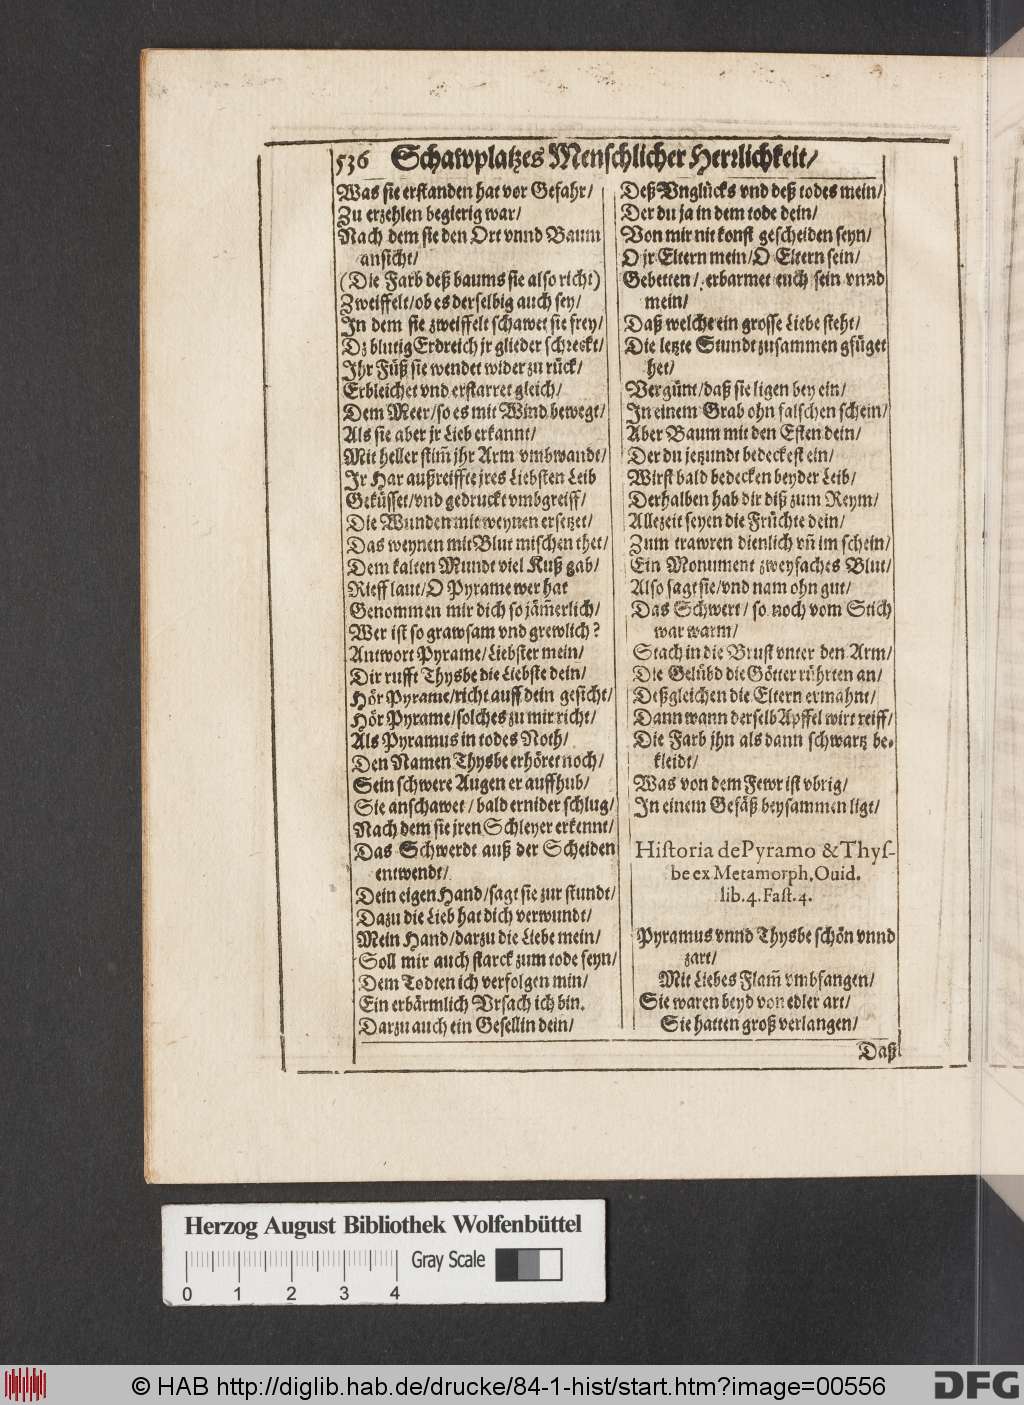 536 Schawplatzes Menschlicher Herrlichkeit/
Was sie erstanden hat vor Gefahr/
Zu erzehlen begierig war/
Nach dem sie den Ort vnnd Baum
ansicht/
(Die Farb deß baums sie also richt)
Zweiffelt/ob es derselbig auch sey/
In dem sie zweiffelt schawet sie frey/
Dz blutig Erdreich jr glieder schreckt/
Ihr Füß sie wendet wider zu rück/
Erbleichet vnd erstarret gleich/
Dem Meer/so es mit Wind bewegt/
Als sie aber jr Lieb erkannt/
Mit heller stim̃ jhr Arm vmbwandt/
Jr Har außreiffte jres Liebsten Leib
Geküsset/vnd gedruckt vmbgreiff/
Die Wunden mit weynen ersetzet/
Das weynen mit Blut mischen thet/
Dem kalten Mundt viel Kuß gab/
Rieff laut/O Pyrame wer hat
Genommen mir dich so jäm̃erlich/
Wer ist so grawsam vnd grewlich?
Antwort Pyrame/Liebster mein/
Dir rufft Thysbe die Liebste dein/
Hör Pyrame/richt auff dein gesicht/
Hör Pyrame/solches zu mir richt/
Als Pyramus in todes Noth/
Den Namen Thysbe erhöret noch/
Sein schwere Augen er auffhub/
Sie anschawet/bald ernider schlug/
Nach dem sie jren Schleyer erkennt/
Das Schwerdt auß der Scheiden
entwendt/
Dein eigen Hand/sagt sie zur stundt/
Dazu die Lieb hat dich verwundt/
Mein Hand/darzu die Liebe mein/
Soll mir auch starck zum tode seyn/
Dem Todten ich verfolgen min/
Ein erbärmlich Vrsach ich bin.
Darzu auch ein Gesellin dein/
Deß Vnglücks vnd deß todes mein/
Der du ja in dem tode dein/
Von mir nit konst gescheiden seyn/
O jr Eltern mein/O Eltern sein/
Gebetten/erbarmet euch sein vnnd
mein/
Daß welche ein grosse Liebe steht/
Die letzte Stundt zusammen gfüget
het/
Vergünt/daß sie ligen bey ein/
In einem Grab ohn falschen schein/
Aber Baum mit den Esten dein/
Der du jetzundt bedeckest ein/
Wirst bald bedecken beyder Leib/
Derhalben hab dir diß zum Reym/
Allezeit seyen die Früchte dein/
Zum trawren dienlich vñ im schein/
Ein Monument zweyfaches Blut/
Also sagt sie/vnd nam ohn gut/
Das Schwert/so noch vom Stich
war warm/
Stach in die Brust vnter den Arm/
Die Gelübd die Götter rührten an/
Deßgleichen die Eltern ermahnt/
Dann wann derselb Apffel wirt reiff/
Die Farb jhn als dann schwartz be-
kleidt/
Was von dem Fewr ist vbrig/
In einem Gefäß beysammen ligt/
Historia de Pyramo & Thys-
be ex Metamorph. Ouid.
lib. 4. Fast. 4.
Pyramus vnnd Thysbe schön vnnd
zart/
Mit Liebes Flam̃ vmbfangen/
Sie waren beyd von edler art/
Sie hatten groß verlangen/
Daß
Herzog August Bibliothek Wolfenbüttel
Gray Scale
0 1 2 3 4
© HAB http://diglib.hab.de/drucke/84-1-hist/start.htm?image=00556
DFG